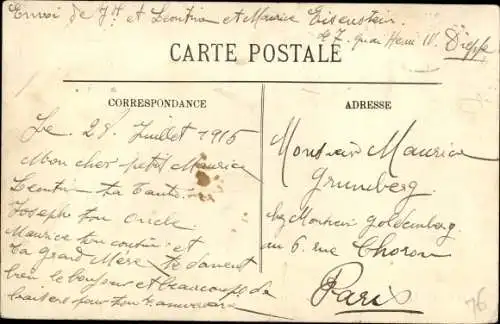 Envoi de Jh et Léontin et Maurice Eisenstein.
47 quai Henri IV. Dieppe
CARTE POSTALE
CORRESPONDANCE
ADRESSE
Le 28 Juillet 1915
Mon cher petit Maurice
Léontin ta tante
Joseph ton oncle
Maurice ton cousin et
ta grand Mère te donnent
bien le bonjour et beaucoup de
baisers pour ton anniversaire
Monsieur Maurice
Grunberg
chez Monsieur Goldenberg
au 6. rue Choron
Paris
76